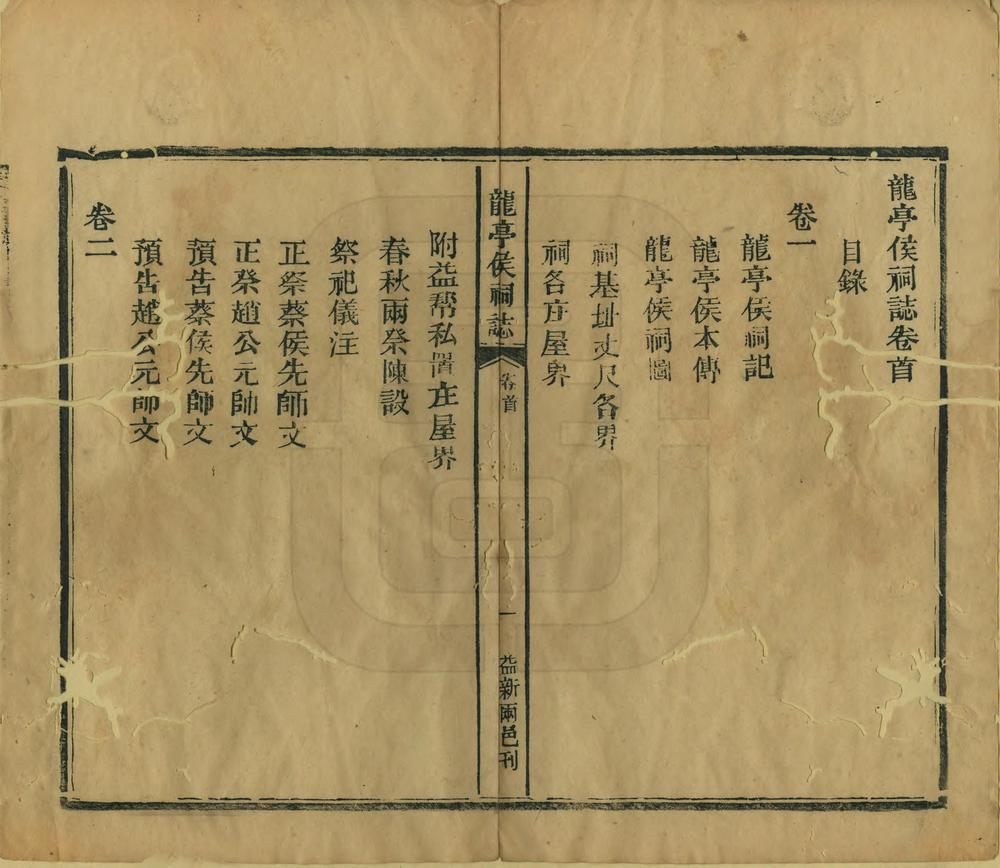 龍亭侯祠誌卷首
目錄
卷一
龍亭侯祠記
龍亭侯本傳
龍亭侯祠圖
祠基址丈尺各界
祠各庄屋界
龍亭侯祠誌
卷首
一
益新兩邑刊
附益帮私置庄屋界
春秋兩祭陳設
祭祀儀注
正祭蔡侯先師文
正祭趙公元帥文
預告蔡侯先師文
預告趙公元帥文
卷二